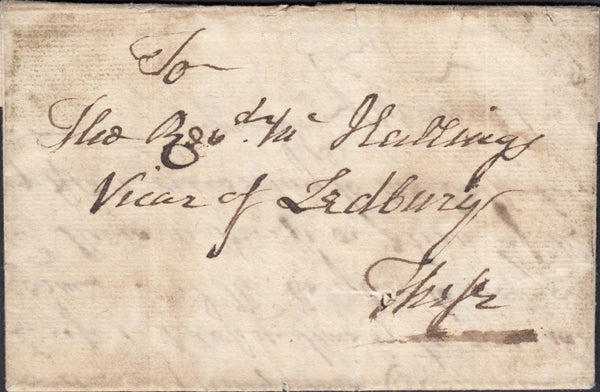 To
The Revd. Mr Hallings
Vicar of Ledbury
These